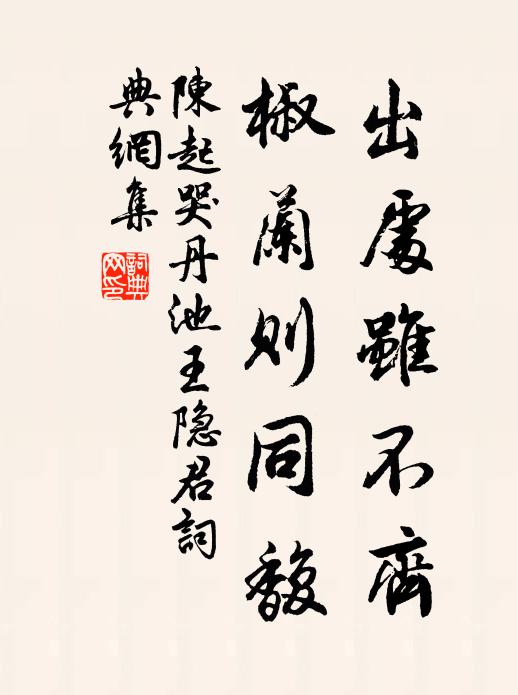 出處雖不齊
椒蘭則同馥
陳起哭丹池王隐君詞
典網集
詞典
网印